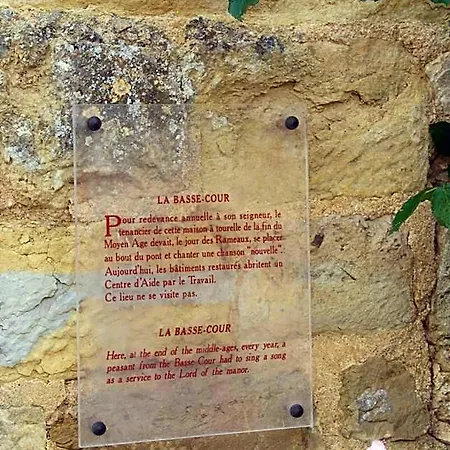 LA BASSE-COUR
Pour redevance annuelle à son seigneur, le
tenancier de cette maison à tourelle de la fin du
Moyen Age devait, le jour des Rameaux, se placer
au bout du pont et chanter une chanson "nouvelle".
Aujourd'hui, les bâtiments restaurés abritent un
Centre d'Aide par le Travail.
Ce lieu ne se visite pas.
LA BASSE-COUR
Here, at the end of the middle-ages, every year, a
peasant from the Basse Cour had to sing a song
as a service to the Lord of the manor.